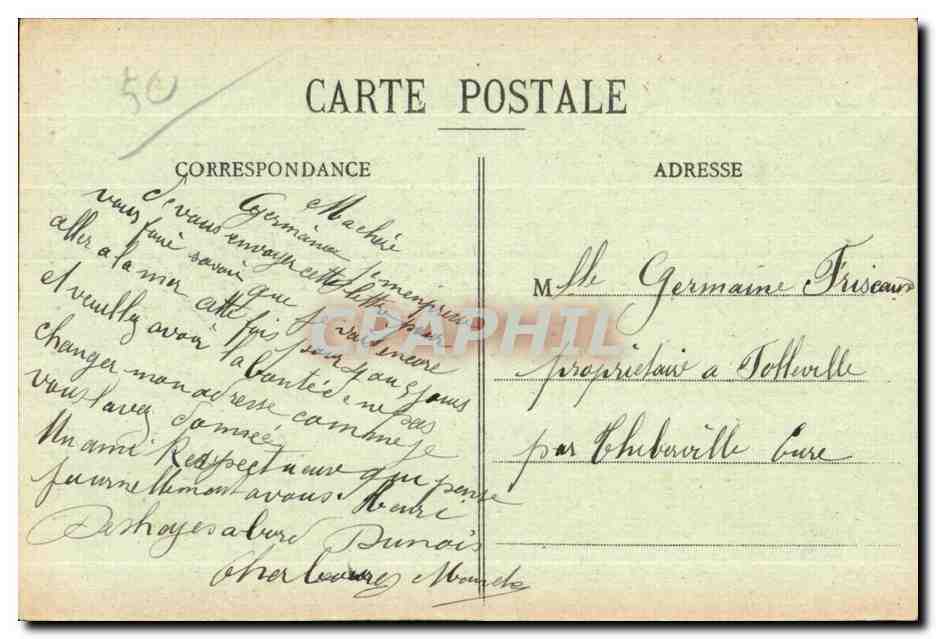 50
CARTE POSTALE
CORRESPONDANCE
Ma chère
Germaine je m'empresse
de vous envoyer cette lettre pour
vous faire savoir que je vais encore
aller a la mer cette fois pour 4 ou 5 jours
et veuillez avoir la bonté de ne pas
changer mon adresse comme je
vous lavez donnée
Un ami Respectueux qui pense
journellement a vous. Henri
Deshayes a bord Dunois
Cherbourg Manche
ADRESSE
Mlle Germaine Friseaux
propriétaire a Folleville
par Thiberville Eure
CPAPHIL